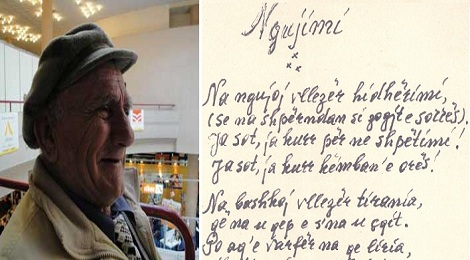 Ngujimi
Na ngujoj vllezër hidhërimi,
(se na shpërndan si zogjt e sorrës).
Ja sot, ja kurr për ne shpëtimi!
Ja sot, ja kurr këmban'e orës!
Na bashkoj vllezër tirania,
që na u qep e s'na u çqit.
Po aq'e varfër na qe liria,